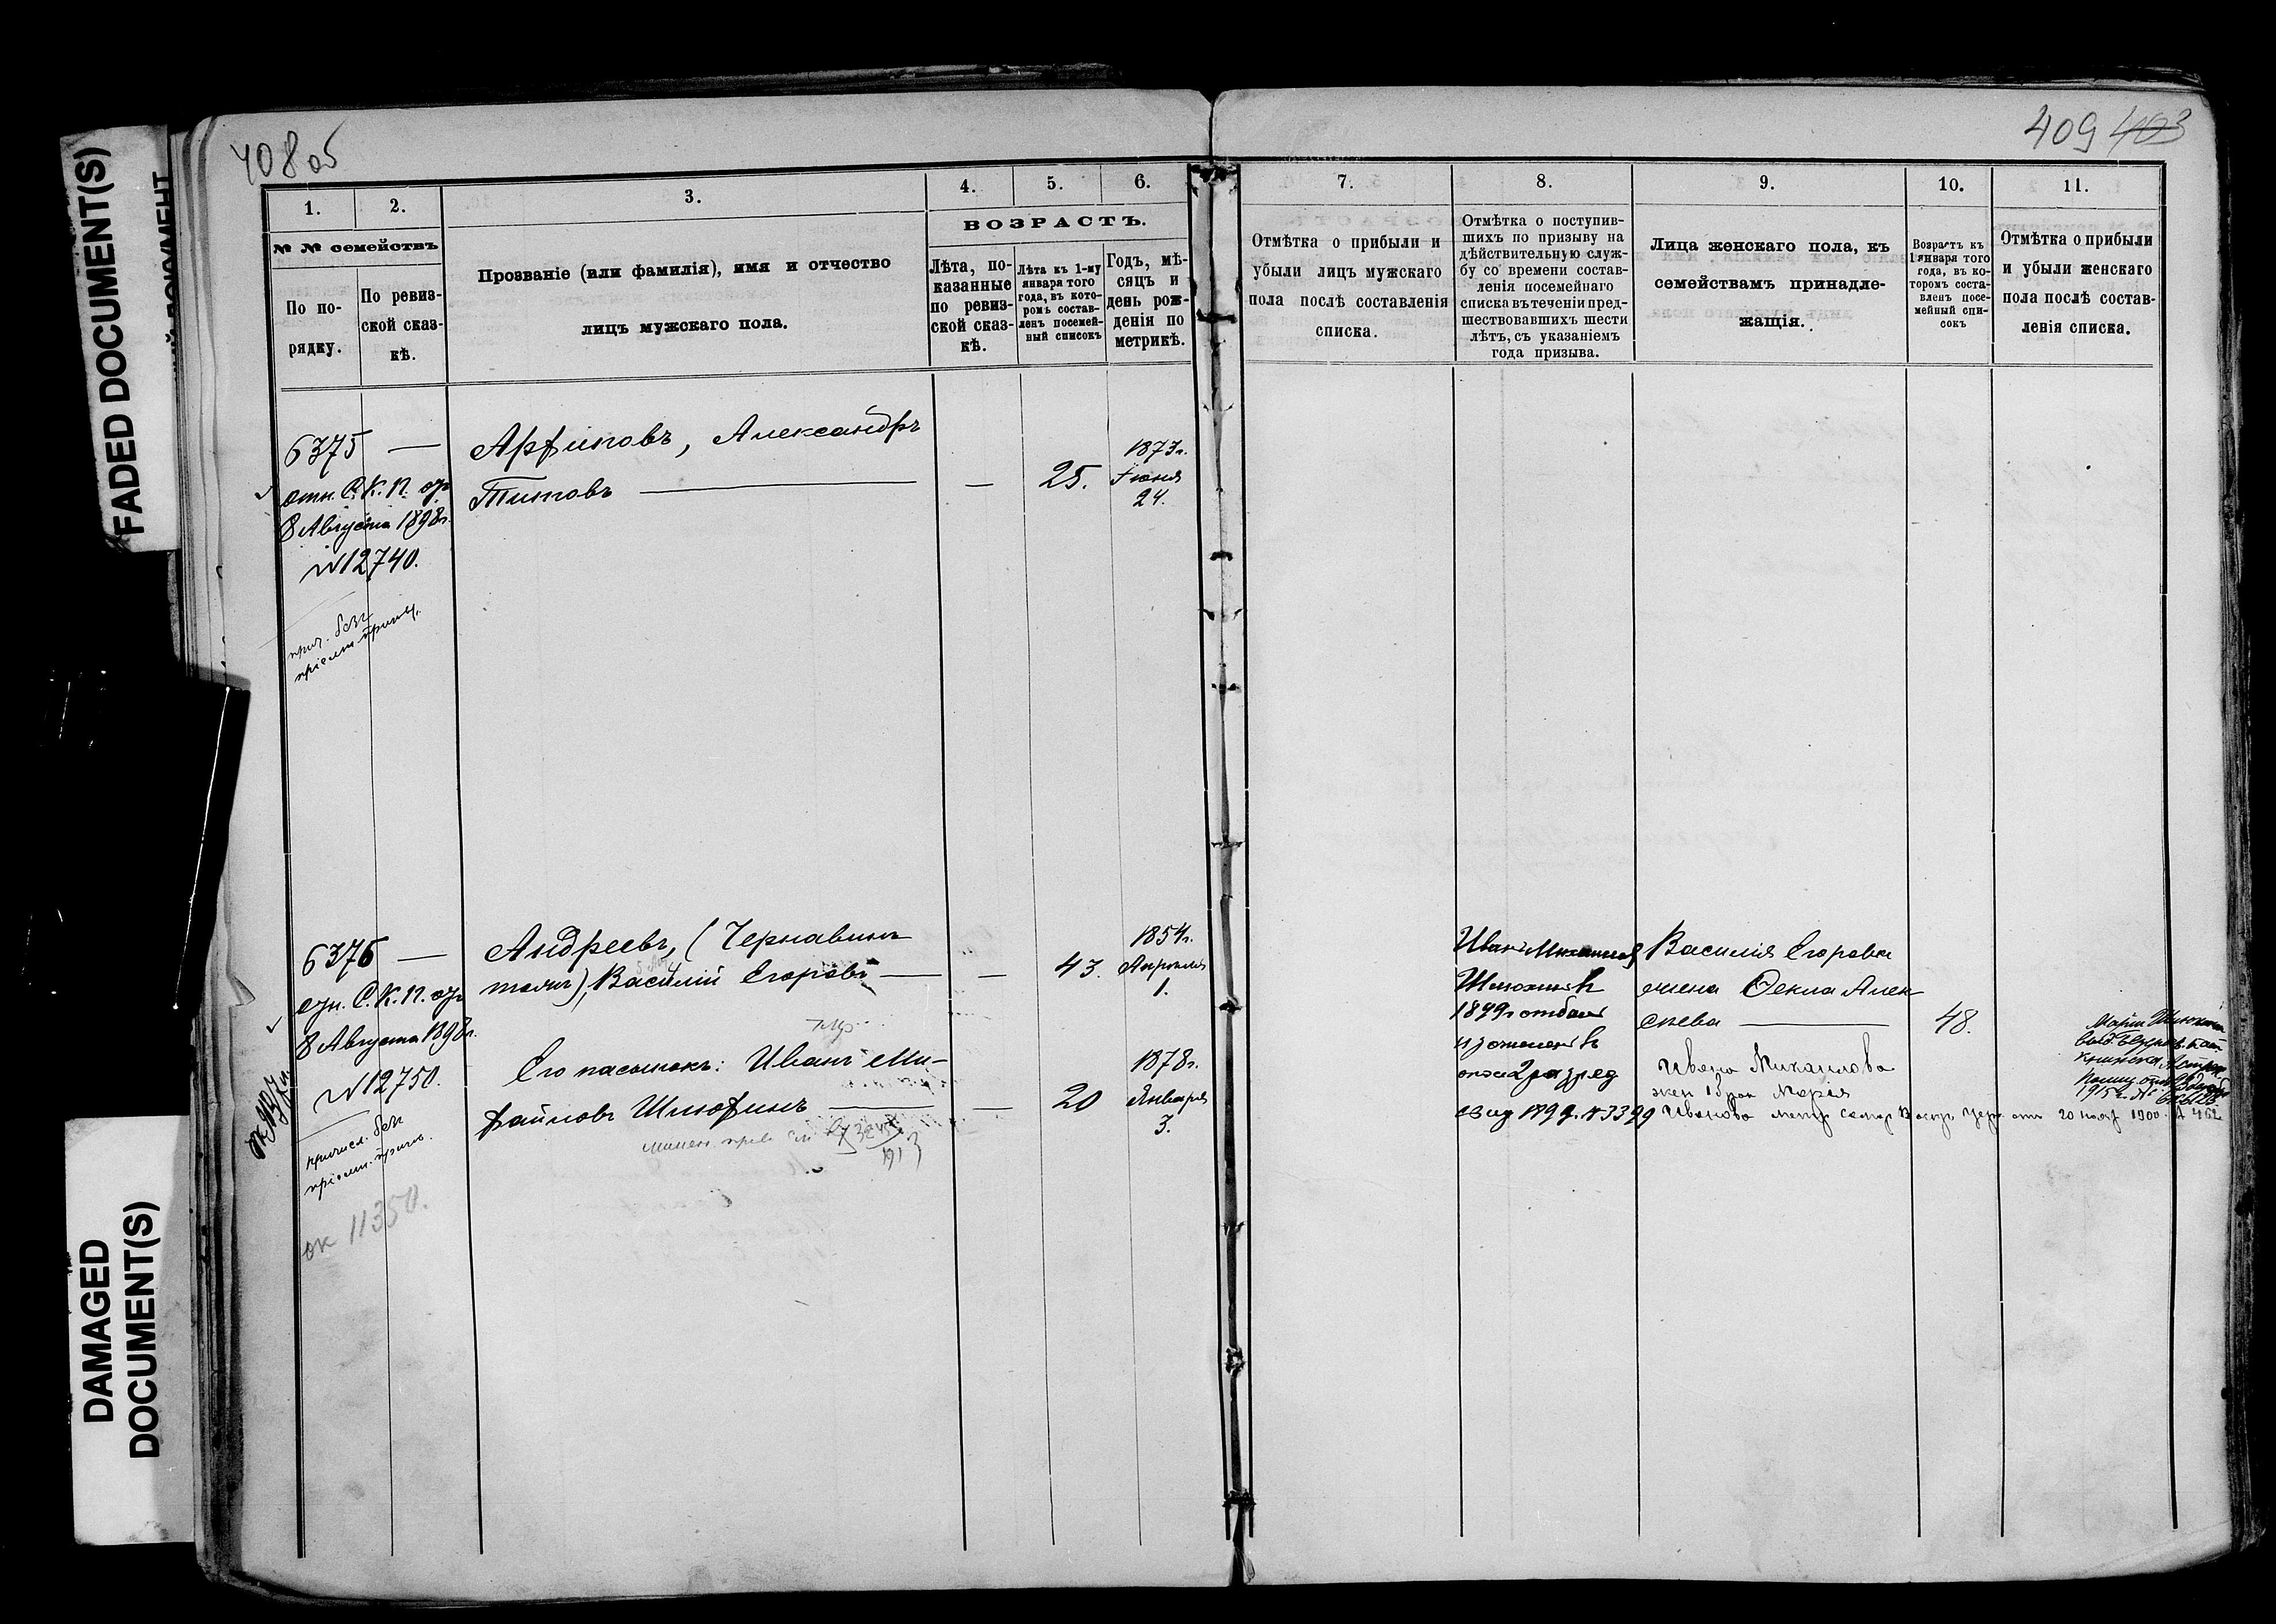 FADED DOCUMENT(S)
DAMAGED
DOCUMENT(S)
408 об
409 403
1.
2.
3.
4.
5.
6.
№ № семействъ
По по-
рядку.
По ревиз-
ской сказ-
кѣ.
Прозваніе (или фамилія), имя и отчество
лицъ мужскаго пола.
ВОЗРАСТЪ.
Лѣта, по-
казанные
по ревиз-
ской сказ-
кѣ.
Лѣта къ 1-му
января того
года, въ кото-
ромъ состав-
ленъ посемей-
ный списокъ
Годъ, мѣ-
сяцъ и
день рож-
деніи по
метрикѣ.
6375 —
отн. С. К. П. отъ
8 Августа 1898г.
№12740.
прич. безъ
пріемн. пригов.
Арфиповъ, Александръ
Титовъ —
—
25.
1873г.
Іюня
24.
6376 —
отн. С. К. П. отъ
8 Августа 1898г.
№12750.
причисл. безъ
пріемн. пригов.
ок 11350.
Андреевъ, (Чернавинъ
тожъ), Василій Егоровъ —
—
43.
1854г.
Апрѣля
1.
Его пасынокъ: Иванъ Ми-
хайловъ Шлюхинъ —
—
20
1878г.
Января
3.
1913
7.
8.
9.
10.
11.
Отмѣтка о прибыли и
убыли лицъ мужскаго
пола послѣ составленія
списка.
Отмѣтка о поступив-
шихъ по призыву на
дѣйствительную служ-
бу со времени состав-
ленія посемейнаго
списка въ теченіи пред-
шествовавшихъ шести
лѣтъ, съ указаніемъ
года призыва.
Лица женскаго пола, къ
семействамъ принадле-
жащія.
Возрастъ къ
1 января того
года, въ ко-
торомъ соста-
вленъ посе-
мейный спи-
сокъ
Отмѣтка о прибыли
и убыли женскаго
пола послѣ состав-
ленія списка.
Иванъ Михайлов
Шлюхинъ
1899г отбыл
2 разряд
свид 1899г. №3399
Василія Егорова
жена Ѳекла Алек
сѣева —
48.
Ивана Михаилова
жен 1 брак Марія
Иванова метр
20 нояб 1900. № 462
Марія Шлюхина
1915г. №